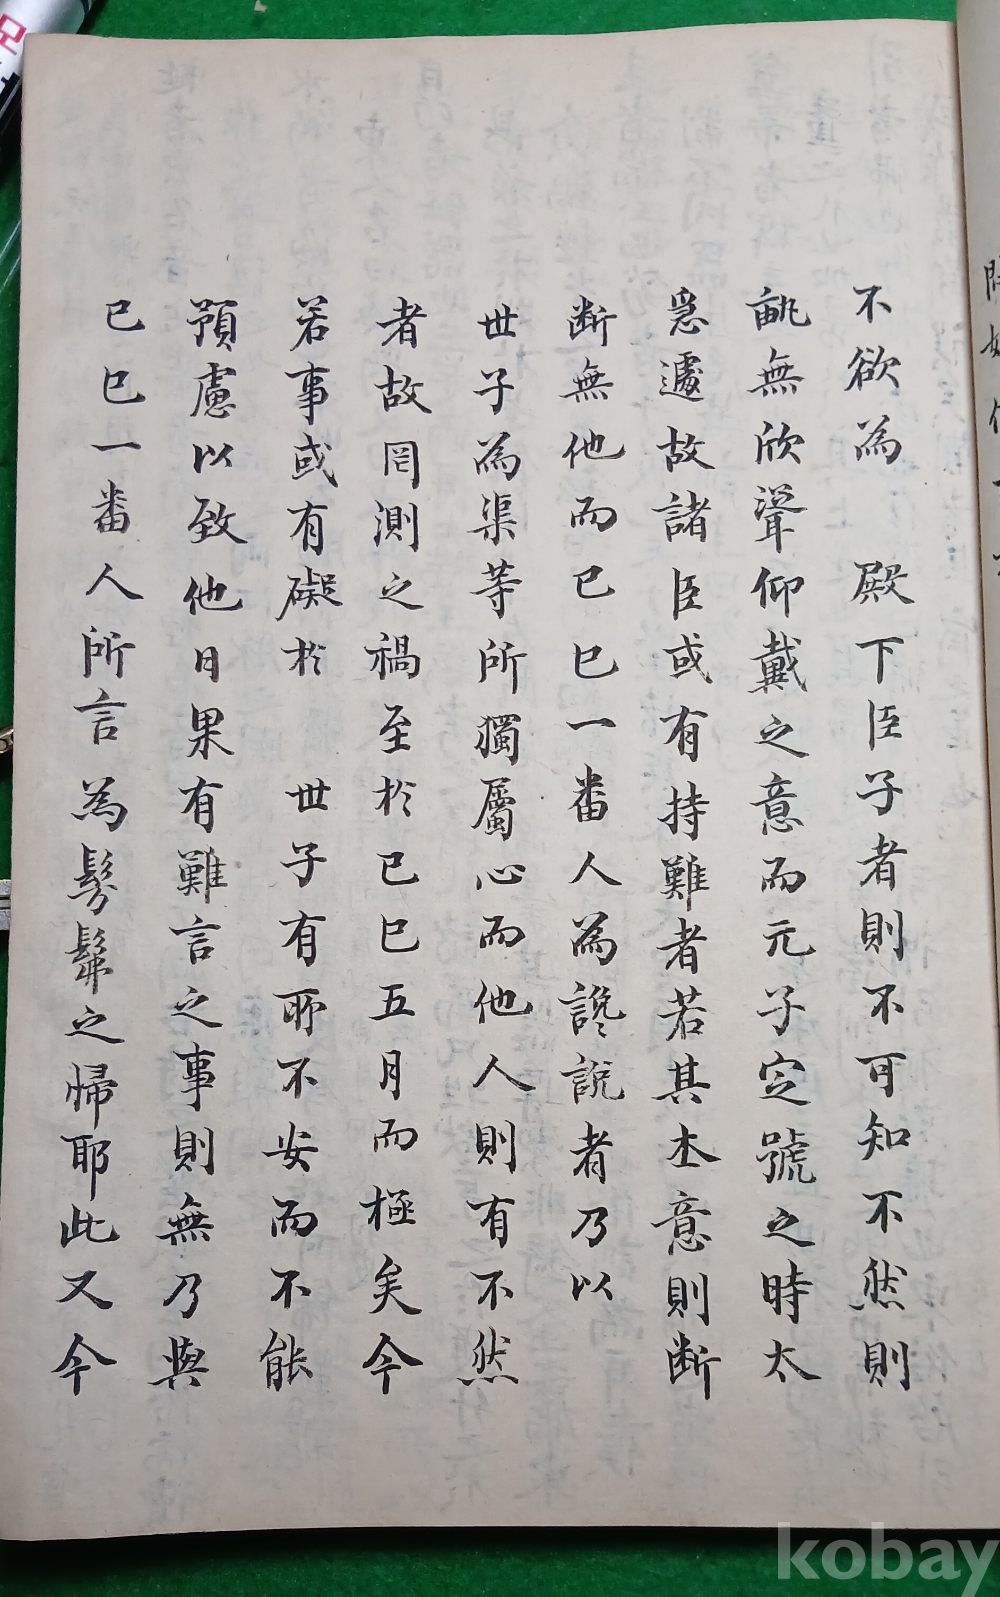 不欲為　殿下臣子者則不可知不然則
畝無欣聳仰戴之意而元子定號之時太
急遽故諸臣或有持難者若其本意則断
断無他而已巳一番人為讒說者乃以
世子為渠等所獨屬心而他人則有不然
者故罔測之禍至於己巳五月而極矣今
若事或有礙於　世子有所不安而不能
預慮以致他日果有難言之事則無乃與
己巳一番人所言為髣髴之帰耶此又今
kobay